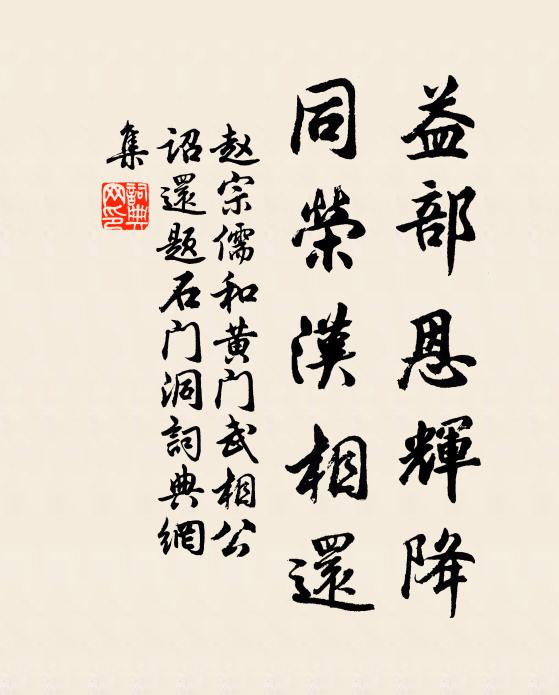 益部恩輝降
同榮漢相還
赵宗儒和黄门武相公
詔還题石门洞詞典網
集
詞典網印